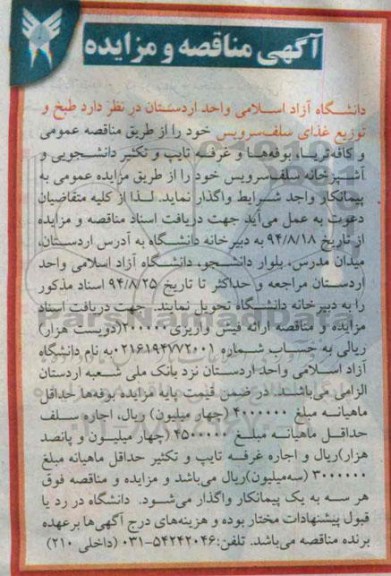 آگهی مناقصه و مزایده
دانشگاه آزاد اسلامی واحد اردستان در نظر دارد طبخ و
توزیع غذای سلف‌سرویس خود را از طریق مناقصه عمومی
و کافه‌تریا، بوفه‌ها و غرفه تایپ و تکثیر دانشجویی و
آشپزخانه سلف‌سرویس خود را از طریق مزایده عمومی به
پیمانکار واجد شرایط واگذار نماید. لذا از کلیه متقاضیان
دعوت به عمل می‌آید جهت دریافت اسناد مناقصه و مزایده
از تاریخ ۹۴/۸/۱۸ به دبیرخانه دانشگاه به آدرس اردستان،
میدان مدرس، بلوار دانشجو، دانشگاه آزاد اسلامی واحد
اردستان مراجعه و حداکثر تا تاریخ ۹۴/۸/۲۵ اسناد مذکور
را به دبیرخانه دانشگاه تحویل نمایند. جهت دریافت اسناد
مزایده و مناقصه ارائه فیش واریزی ۲۰۰۰۰۰(دویست هزار)
ریالی به حساب شماره ۰۲۱۶۱۹۴۷۷۲۰۰۱ به نام دانشگاه
آزاد اسلامی واحد اردستان نزد بانک ملی شعبه اردستان
الزامی می‌باشد. در ضمن قیمت پایه مزایده بوفه‌ها حداقل
ماهیانه مبلغ ۴۰۰۰۰۰۰ (چهار میلیون) ریال، اجاره سلف
حداقل ماهیانه مبلغ ۴۵۰۰۰۰۰ (چهار میلیون و پانصد
هزار)ریال و اجاره غرفه تایپ و تکثیر حداقل ماهیانه مبلغ
۳۰۰۰۰۰۰ (سه‌میلیون)ریال می‌باشد و مزایده و مناقصه فوق
هر سه به یک پیمانکار واگذار می‌شود. دانشگاه در رد یا
قبول پیشنهادات مختار بوده و هزینه‌های درج آگهی‌ها برعهده
برنده مناقصه می‌باشد. تلفن:۵۴۲۴۲۰۴۶-۰۳۱ (داخلی ۲۱۰)